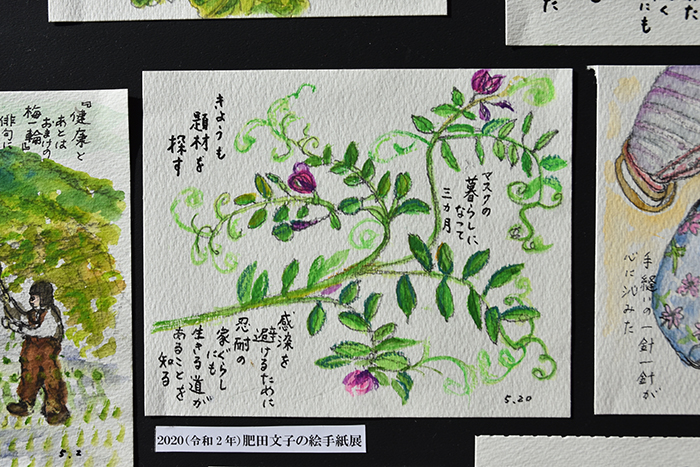 きょうも
題材を
探す
マスクの
暮らしに
なって
三カ月
感染を
避けるために
忍耐の
家ぐらし
にも
生きる道が
あることを
知る
5.20
『健康と
あとは
おまけの
梅一輪』
俳句に
5.2
手縫いの一針一針が
心に沁みた
2020(令和2年)肥田文子の絵手紙展